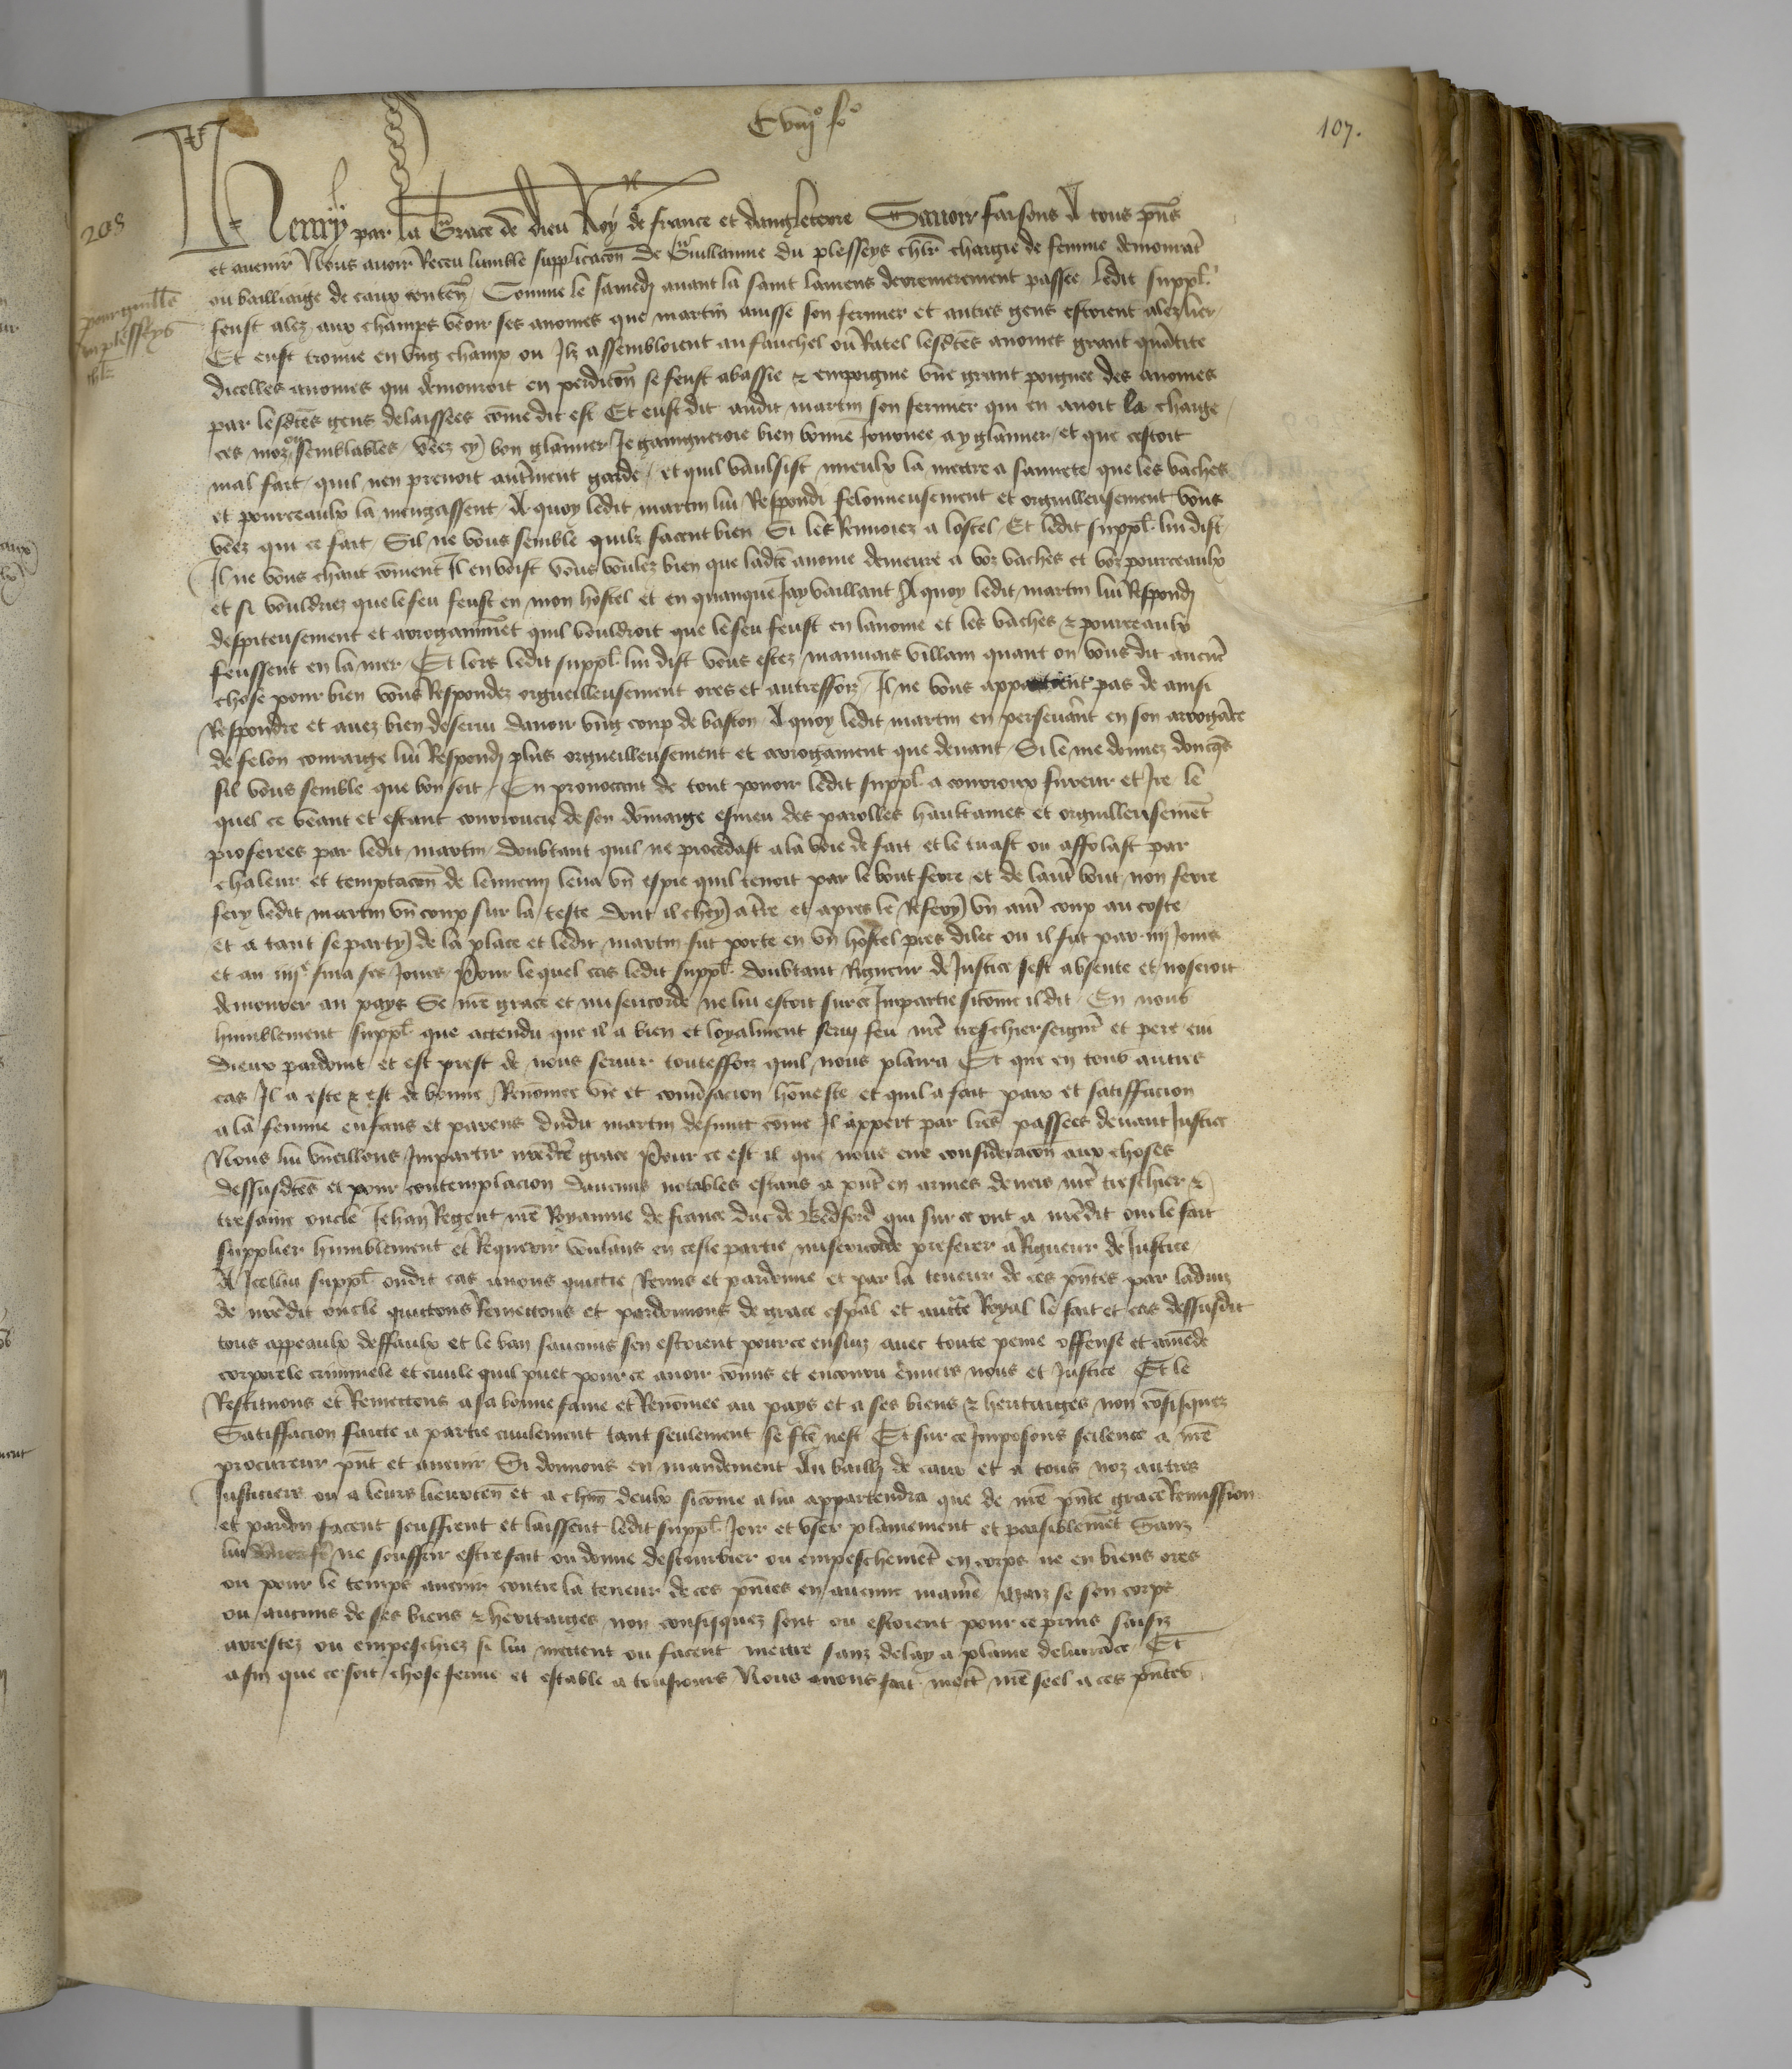 Cviijº fº
107.
208
pour guille
du plesseys
chlr
Henry par la Grace de dieu Roy de france et dangleterre Savoir faisons A tous pns
et avenir Nous avoir Receu lumble supplicacon De Guillaume du plesseys chlr chargie de femme demourat
ou bailliaige de caux conten Comme le samedj avant la saint lamens derrenierement passee ledit suppl
feust alez aux champs veoir ses avoines que martin ausse son fermier et autres gens estoient alez lier
Et eust trouve en ung champ ou Ilz assembloient au fauchel ou Ratel lesdtes avoines grant quatite
dicelles avoines qui demouroit en perdicon se feust abassie & empoignie une grant poignee des avoines
par lesdtes gens delaissees come dit est Et eust dit audit martin son fermier qui en avoit la charge
ces moz ou semblables veez cy bon glanner Je gaingneroie bien bonne Journee a y glanner et que cestoit
mal fait quil nen prenoit autrement garde et quil vaulsist mieulx la mettre a sauvete que les vaches
et pourceaulx la mengassent A quoy ledit martin lui Respondi felonneusement et orguilleusement vous
veez qui ce fait Sil ne vous semble quilz facent bien Si les Renvoiez a lostel Et ledit suppl lui dist
Il ne vous chaut coment Il en voist vous voulez bien que ladte avoine demeure a voz vaches et voz pourceaulx
et si vouldriez que le feu feust en mon hostel et en quanque Jay vaillant A quoy ledit martin lui Respondj
despiteusement et arrogamment quil vouldroit que le feu feust en lavoine et les vaches & pourceaulx
feussent en la mer Et lors ledit suppl lui dist vous estez mauvais villain quant on vous dit aucune
chose pour bien vous Respondez orgueilleusement ores et autreffoiz Il ne vous appartient pas de ainsi
Respondre et avez bien desservi davoir ung coup de baston A quoy ledit martin en perseverant en son arrogace
de felon couraige lui Respondj plus orgueilleusement et arrogament que devant Si le me donnez doncqs
sil vous semble que bon soit En provocant de tout povoir ledit suppl a courroux fureur et Ire le
quel ce veant et estant courroucie de son dommaige esmeu des parolles haultaines et orguilleusement
proferees par ledit martin doubtant quil ne procedast a la voie de fait et le tuast ou affolast par
chaleur et temptacon de lennemj leva un espie quil tenoit par le bout ferre et de lautre bout non ferre
fery ledit martin un coup sur la teste dont il chey a tre et apres le Refery un autre coup au coste
et a tant se party de la place et ledit martin fut porte en un hostel pres dilec ou il fut par iiij Jours
et au iiijº fina ses Jours Pour lequel cas ledit suppl doubtant Rigueur de Justice sest absente et noseroit
demourer au pays Se nre grace et misericorde ne lui estoit sur ce Impartie sicome il dit En nous
humblement suppl que actendu que il a bien et loyalment servj feu nre treschier seignr et pere cui
dieux pardoint et est prest de nous servir touteffoiz quil nous plaira Et que en tous autres
cas Il a este & est de bonne Renomee vie et conversacion honneste et quil a fait paix et satiffacion
a la femme enfans et parens dudit martin defunct come Il appert par lres passees devant Justice
Nous lui vueillons Impartir nredte grace Pour ce est il que nous eue consideracon aux choses
dessusdtes et pour contemplacion daucuns notables estans a pnt en armes devers nre treschier &
tresame oncle Jehan Regent nre Royaume de france duc de Bedford qui sur ce ont a nredit oncle fait
supplier humblement et Requerir voulans en ceste partie misericorde preferer a Rigueur de Justice
A Icellui suppl ondit cas avons quictie Remis et pardonne et par la teneur de ces pntes par ladviz
de nredit oncle quictons Remectons et pardonnons de grace espal et aucte Royal le fait et cas dessusdit
tous appeaulx deffaulx et le ban saucuns sen estoient pour ce ensuiz avec toute peine offense et amende
corporele criminele et civile quil puet pour ce avoir comis et encouru envers nous et Justice Et le
Restituons et Remectons a sa bonne fame et Renomee au pays et a ses biens & heritaiges non cofisquez
Satiffacion faicte a partie civilement tant seulement se fte nest Et sur ce Imposons scilence a nre
procureur pnt et avenir Si donnons en mandement Au bailly de caux et a tous noz autres
Justiciers ou a leurs lieuxten et a chun deulx sicome a lui appartendra que de nre pnte grace Remission
et pardon facent seuffrent et laissent ledit suppl Joir et user plainement et paisiblement Sanz
lui ne souffrir estre fait ou donne destourbier ou empeschement en corps ne en biens ores
ou pour le temps avenir contre la teneur de ces pntes en aucune maniere Maiz se son corps
ou aucuns de ses biens & heritaiges non confisquez sont ou estoient pour ce prins saisiz
arrestez ou empeschiez si lui mettent ou facent mettre sanz delay a plaine delivrace Et
afin que ce soit chose ferme et estable a tousjours Nous avons fait mectre nre seel a ces pntes